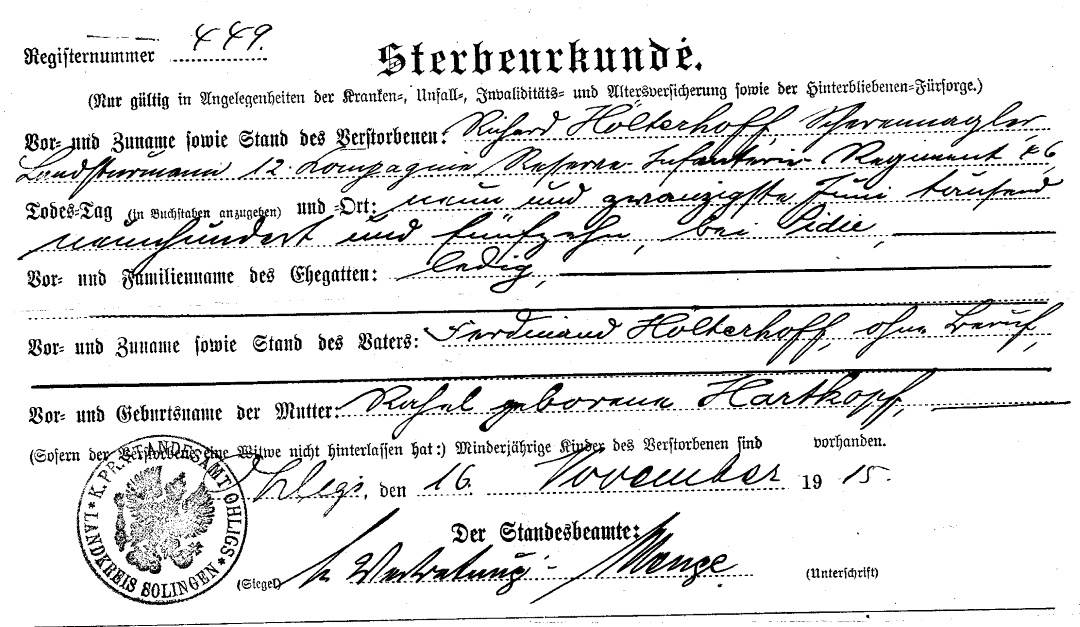 Registernummer 449.
Sterbeurkunde.
(Nur gültig in Angelegenheiten der Kranken-, Unfall-, Invaliditäts- und Altersversicherung sowie der Hinterbliebenen-Fürsorge.)
Vor- und Zuname sowie Stand des Verstorbenen: Richard Hölterhoff, Scherennagler,
Landsturmann 12. Kompagnie Reserve-Infanterie-Regiment 46
Todes-Tag (in Buchstaben anzugeben) und -Ort: neun und zwanzigste Juni tausend
neunhundert und fünfzehn, bei
Vor- und Familienname des Ehegatten: ledig,
Vor- und Zuname sowie Stand des Vaters: Ferdinand Hölterhoff, ohne Beruf,
Vor- und Geburtsname der Mutter: Rahel geborene Hartkopf,
(Sofern der Verstorbene eine Witwe nicht hinterlassen hat:) Minderjährige Kinder des Verstorbenen sind vorhanden.
Ohligs, den 16. November 1915.
Der Standesbeamte:
(Siegel) In Vertretung: Menge (Unterschrift)
* K. PR. STANDESAMT OHLIGS * LANDKREIS SOLINGEN